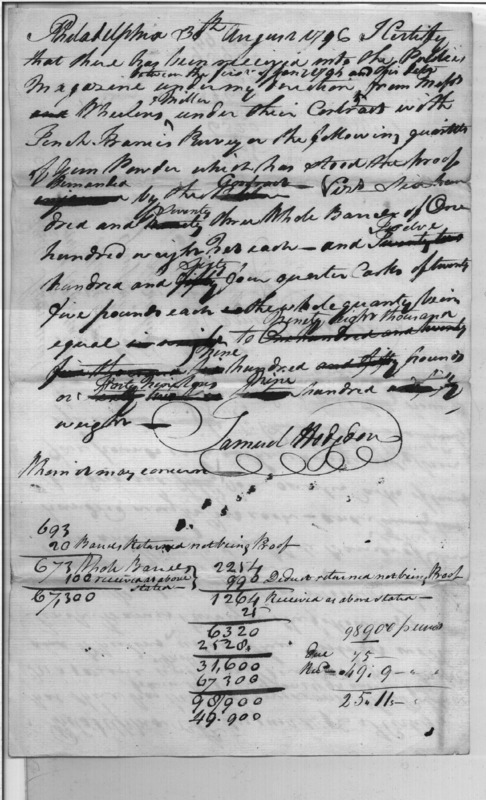 Philadelphia 30th August 1796 I Certify
that there has been received into the Publick
between the first of Jan 1794 and this date
Magazine under my direction from Mess
& Miller
and Wheelen, under their Contract with
Tench Francis Purveyor the following quantity
of Gun Powder which has stood the proof
demanded Contract
by the Vizt Six hun
Seventy
dred and three Whole Barrels of One
Twelve
hundred weight nett each - and Twenty two
Sixty
hundred and fifty four quarter Casks of twenty
five pounds each the whole quantity being
Ninety Eight thousand
equal to One hundred and twenty
Nine
hundred and fifty pounds
Forty nine Tons Nine
or hundred
weight
Samuel Hodgdon
Whom it may concern
693
20 Barrels Returned not being Proof
673 Whole Barrels
100 received as above stated
67,300
2254
990 Deduct returned not being Proof
1264 Received as above stated -
25
6320
2528
31,600
67300
98,900
49.900
98900 pounds
Due 75
Recd 49.9
25.11